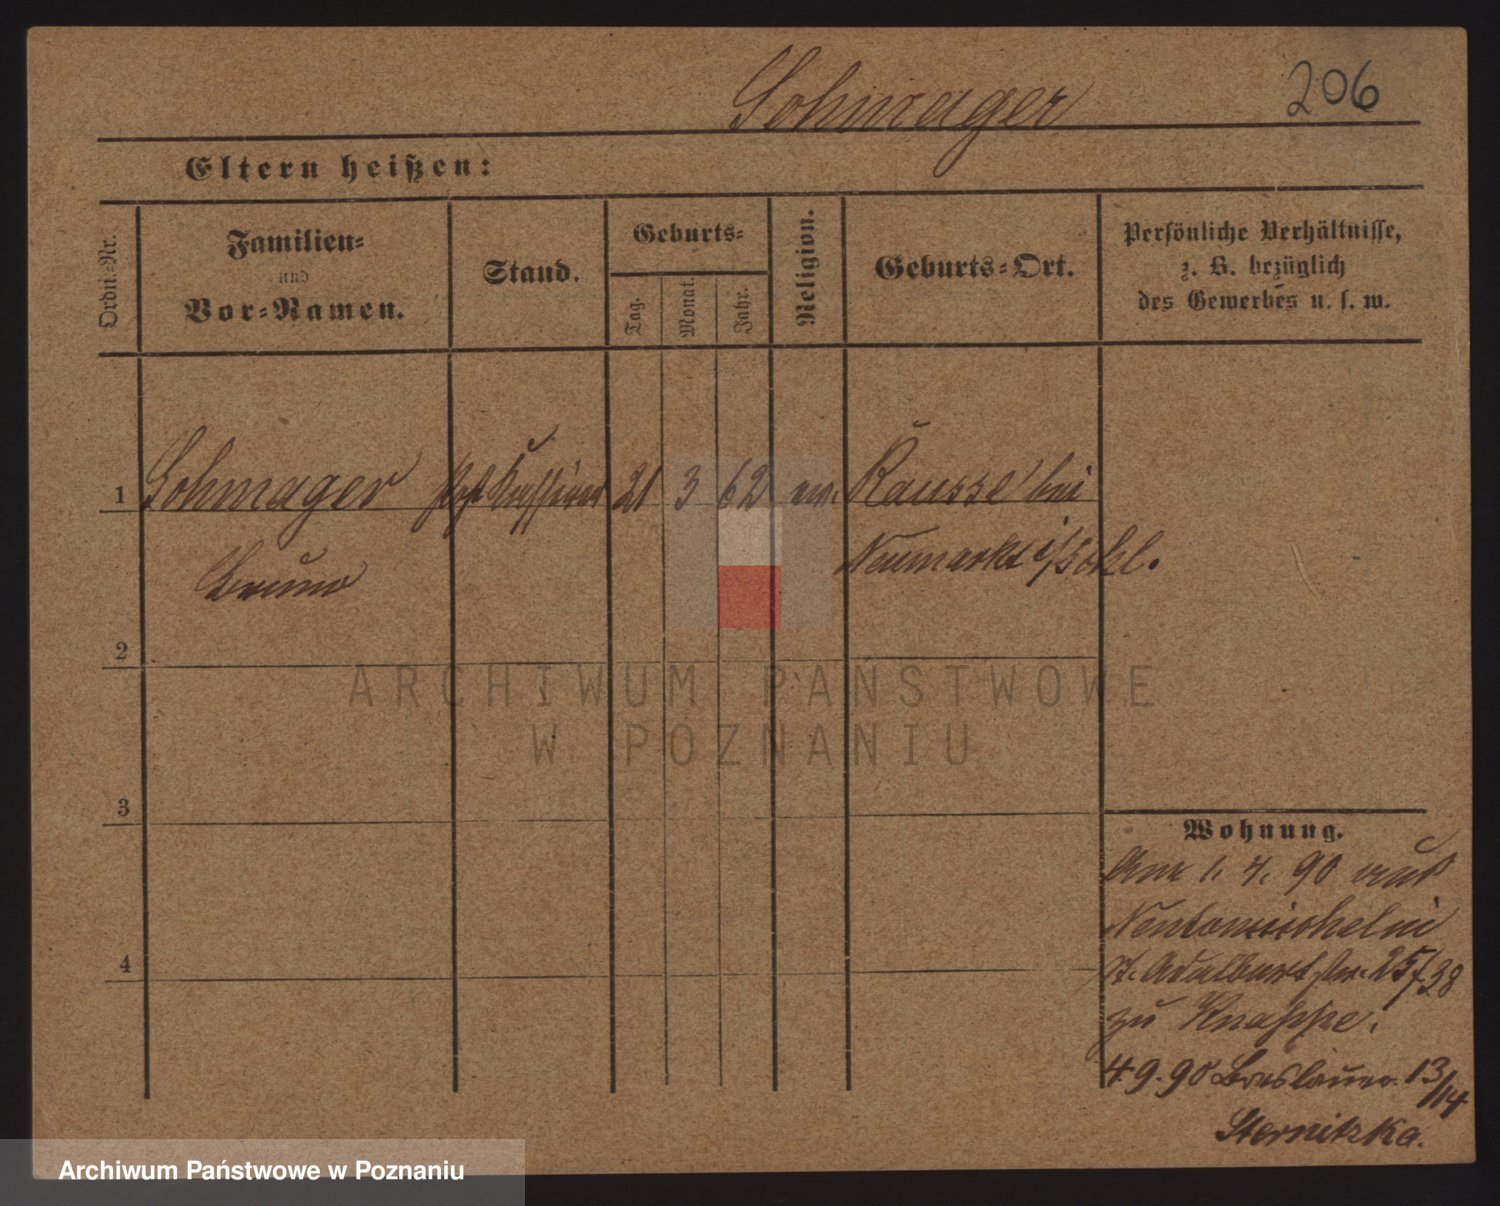 Schwager
206
Eltern heißen:
Ordn.-Nr.
Familien-
und
Vor-Namen.
Stand.
Geburts-
Tag.
Monat.
Jahr.
Religion.
Geburts-Ort.
Persönliche Verhältnisse,
z. B. bezüglich
des Gewerbes u. s. w.
1 Schwager 21 3 62 ev. Rausse bei
Bruno Neumarkt i/Schl.
2
3
4
Wohnung.
Am 1. 4. 90 aus
Neutomischel in
St. Adalbertstr. 25/28
zu Knappe.
4 9. 90 Breslauer. 13/14
Sternitzka.
ARCHIWUM PAŃSTWOWE
W POZNANIU
Archiwum Państwowe w Poznaniu